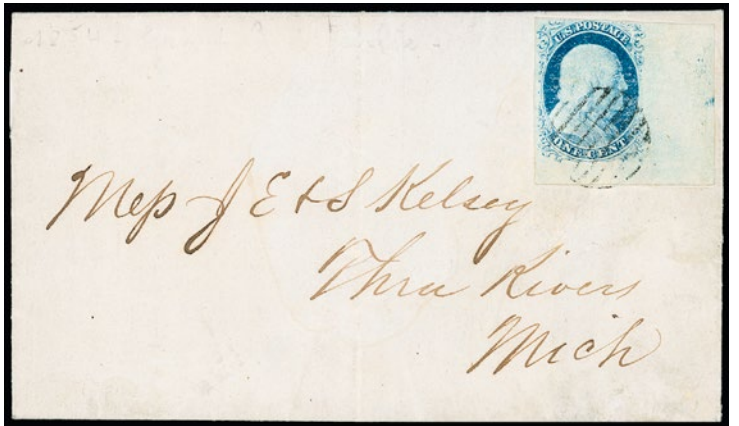 U.S. POSTAGE
ONE CENT
Mess J E & S Kelsey
Three Rivers
Mich